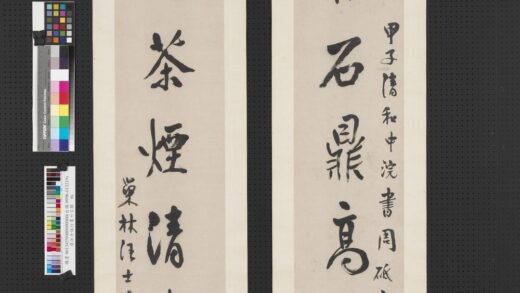 甲子清和中浣書周砥
石鼎高
茶煙清
巢林汪士